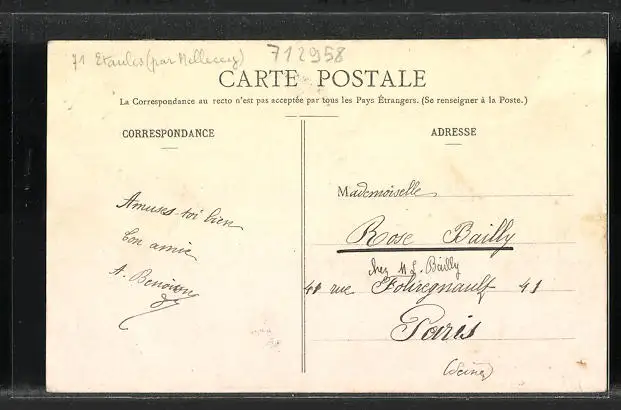 71 Etaules (par Mellecey) 712958
CARTE POSTALE
La Correspondance au recto n'est pas acceptée par tous les Pays Étrangers. (Se renseigner à la Poste.)
CORRESPONDANCE
Amuses-toi bien
ton amie
A. Benoison
ADRESSE
Mademoiselle
Rose Bailly
chez M L. Bailly
41 rue Folie Regnault 41
Paris
(Seine)